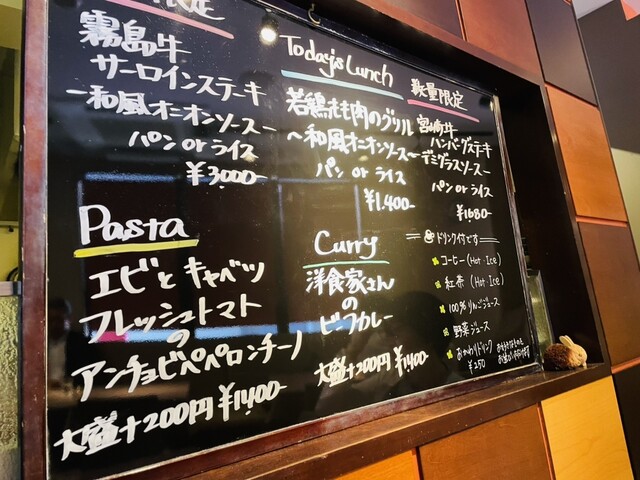 限定
霧島牛
サーロインステーキ
-和風オニオンソース-
パン or ライス
¥3000-
Today's Lunch
若鶏もも肉のグリル
~和風オニオンソース~
パン or ライス
¥1.400-
数量限定
宮崎牛
ハンバーグステーキ
デミグラスソース
パン or ライス
¥1680-
Pasta
エビとキャベツ
フレッシュトマト
の
アンチョビペペロンチーノ
大盛+200円 ¥1400-
Curry
洋食家さん
の
ビーフカレー
大盛+200円 ¥1400-
ドリンク付です
コーヒー (Hot・Ice)
紅茶 (Hot・Ice)
100%りんごジュース
野菜ジュース
おかわりドリンク
¥250